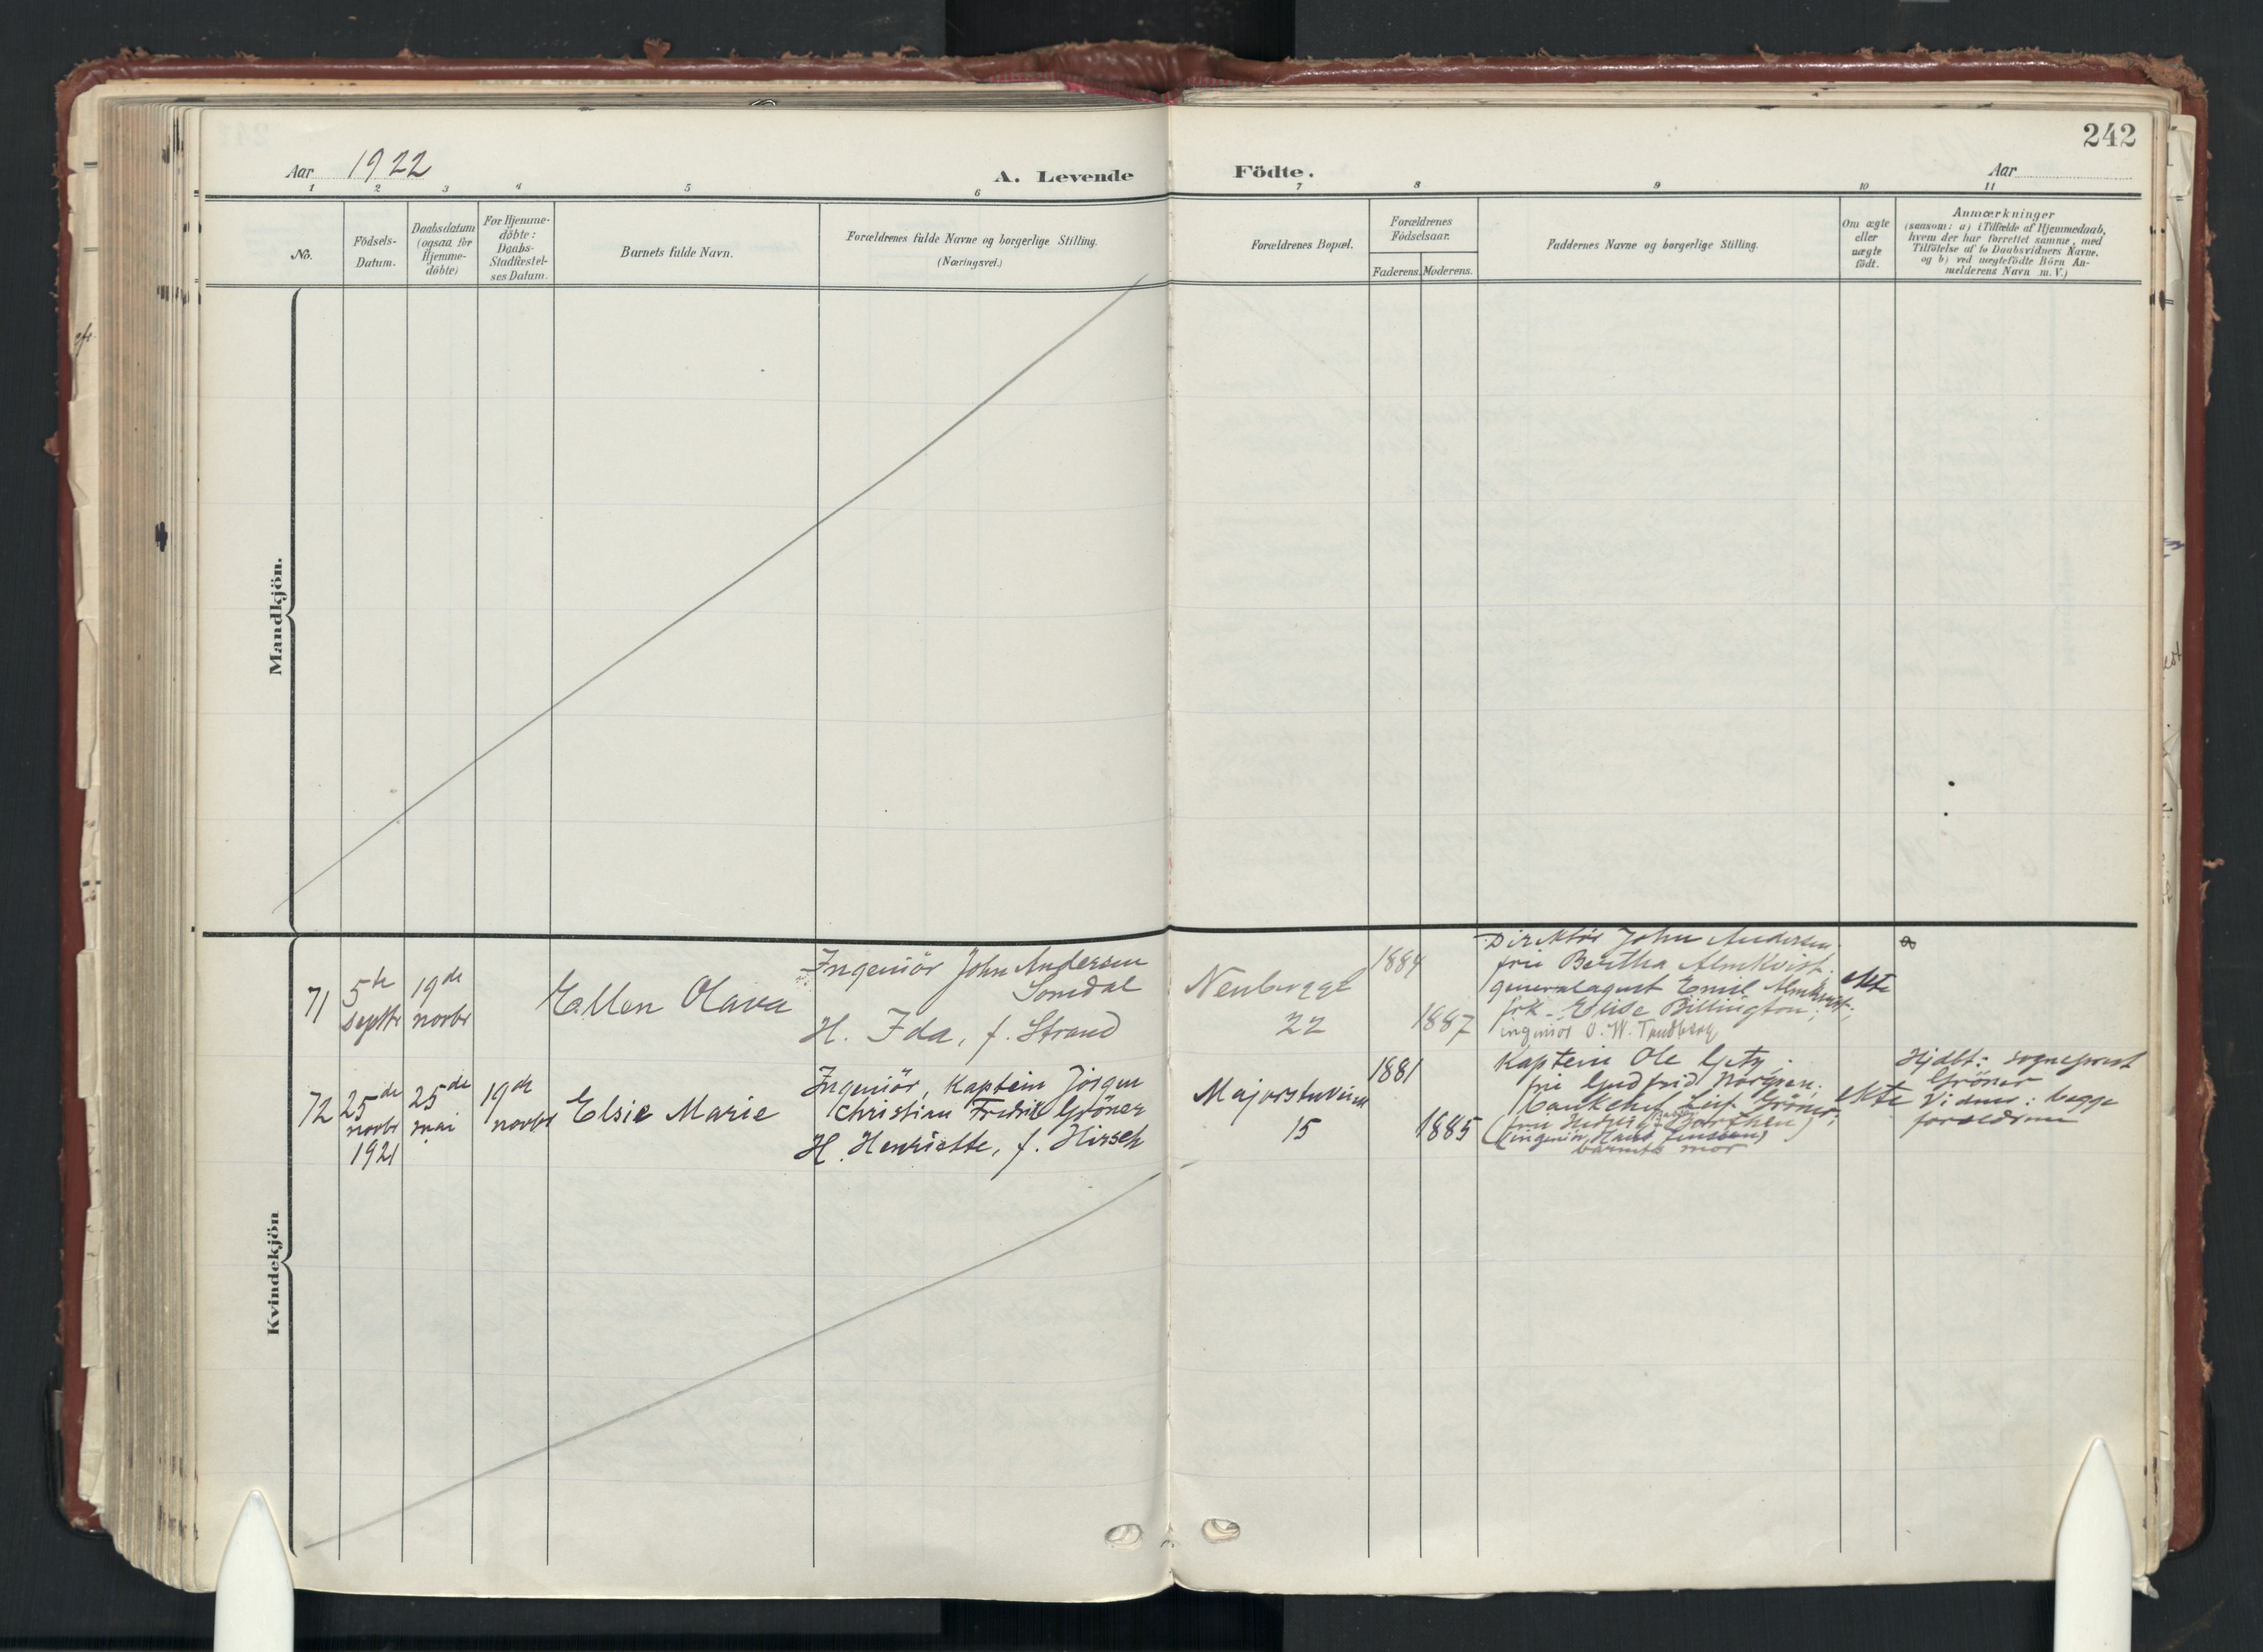 242
Aar 1922
A. Levende Födte.
Aar
1 2 3 4 5 6 7 8 9 10 11
No.
Födsels-
Datum.
Daabsdatum
(ogsaa for
Hjemme-
döbte)
For Hjemme-
döbte:
Daabs-
Stadfæstel-
ses Datum.
Barnets fulde Navn.
Forældrenes fulde Navne og borgerlige Stilling.
(Næringsvei.)
Forældrenes Bopæl.
Forældrenes
Födselsaar.
Faderens. Moderens.
Faddernes Navne og borgerlige Stilling.
Om ægte
eller
uægte
födt.
Anmærkninger
(saasom: a) i Tilfælde af Hjemmedaab,
hvem der har forrettet samme, med
Tilföielse af to Daabsvidners Navne,
og b) ved uægtefödte Börn An-
melderens Navn m. V.)
Mandkjön.
Kvindekjön
71
5te
septbr
19de
novbr
Ellen Olava
Ingeniör John Andersen
Somdal
H. Ida, f. Strand
Neuberggt
22
1884
1887
Direktör John Andersen.
fru Bertha Almkvist.
generalagent Emil Almkvist.
frk. Elise Billington;
ingeniör O. W. Tandberg
ekte
72
25de
novbr
1921
25de
mai
19de
novbr
Elsie Marie
Ingeniör, Kaptein Jörgen
Christian Fredrik Gröner
H. Henriette, f. Hirsch
Majorstuveien
15
1881
1885
Kaptein Ole Getz;
fru Gudfrid Nörgren;
bankchef Leif Gröner;
(ingeniör Hans Jenssen)
barnets mor
ekte
Hjdbt: sogneprest
Gröner
Vidner: begge
forældrene